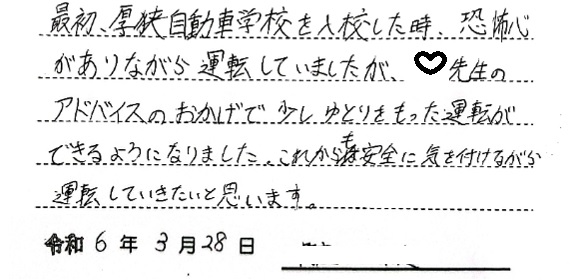 最初、厚狭自動車学校を入校した時、恐怖心
がありながら運転していましたが、♡先生の
アドバイスのおかげで少しゆとりをもった運転が
できるようになりました。これからも安全に気を付けながら
運転していきたいと思います。
令和6年3月28日